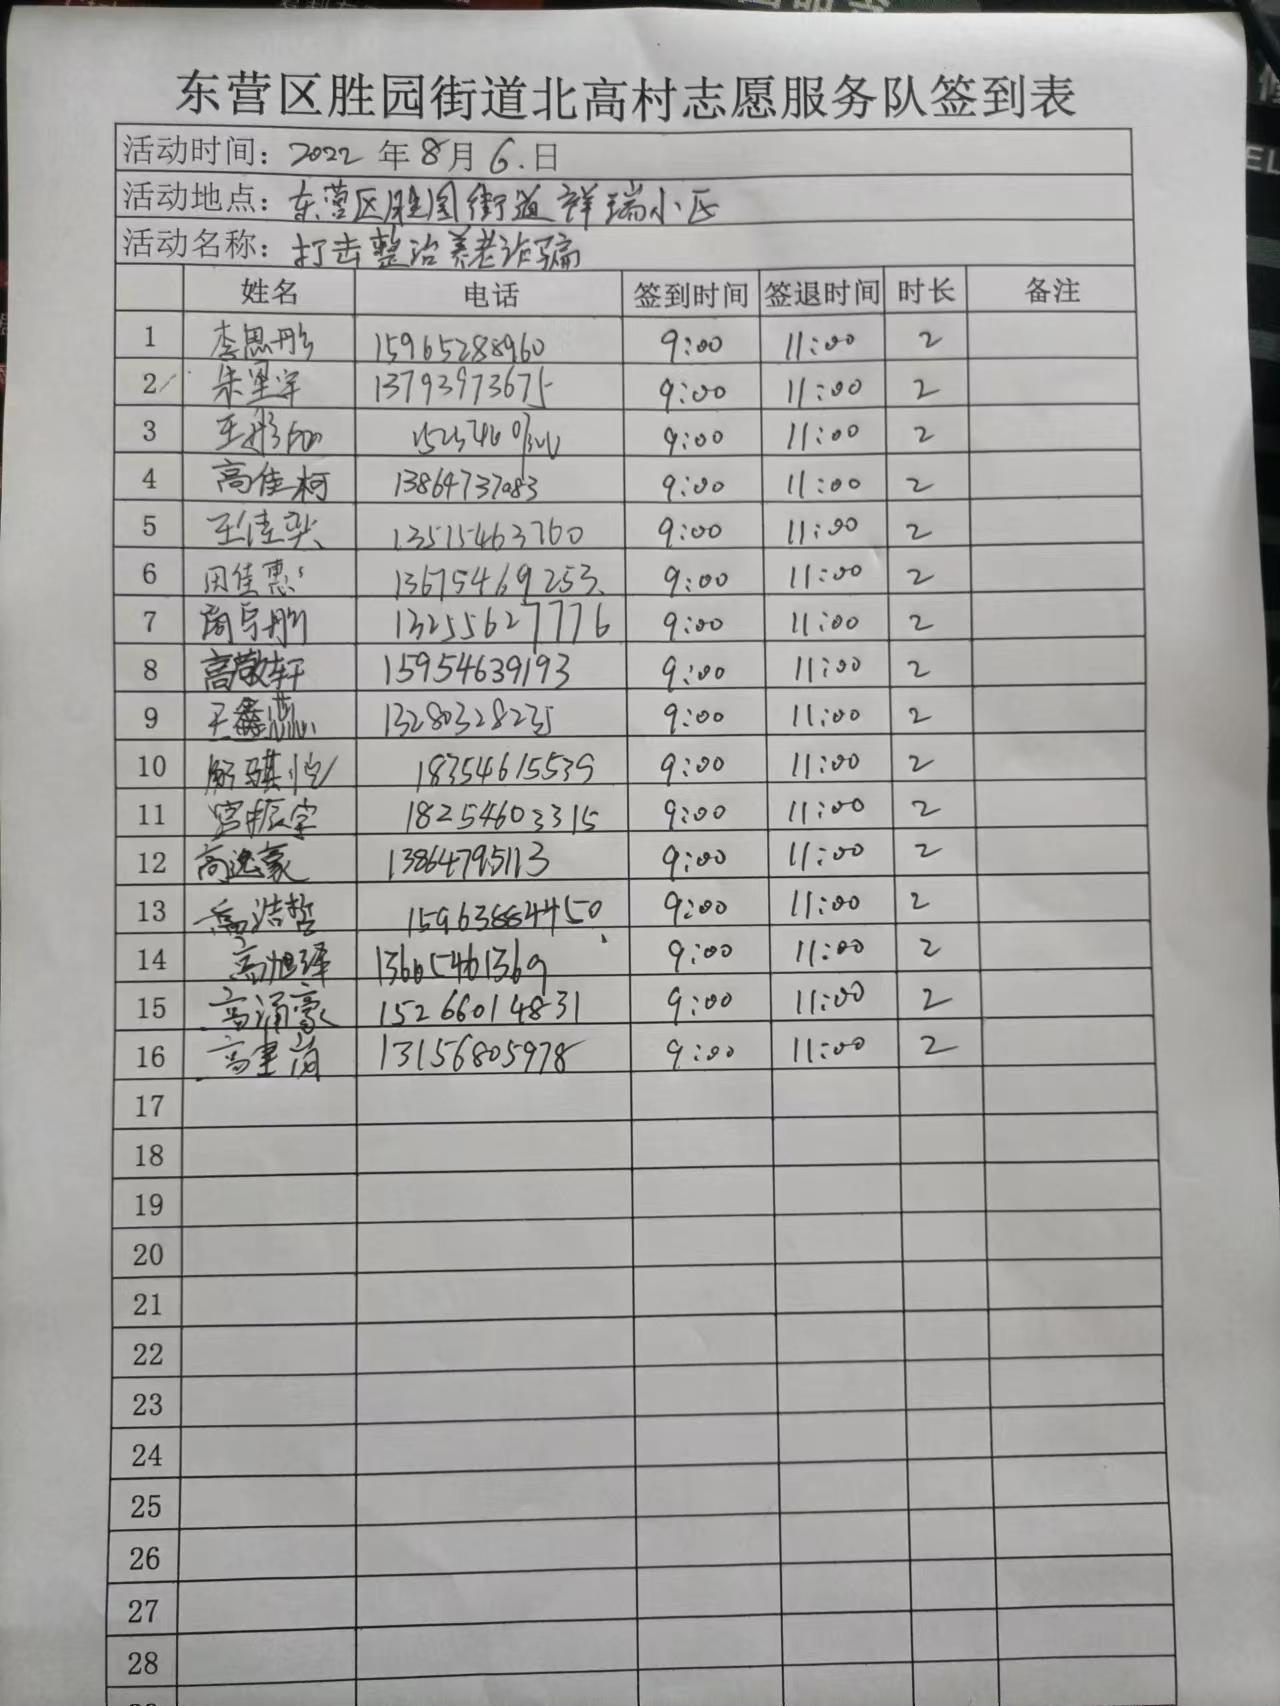 东营区胜园街道北高村志愿服务队签到表
活动时间：2022 年 8 月 6 日
活动地点：东营区胜园街道祥瑞小区
活动名称：打击整治养老诈骗
姓名 电话 签到时间 签退时间 时长 备注
1 李思彤 15965288960 9:00 11:00 2
2 13793973675 9:00 11:00 2
3 9:00 11:00 2
4 高佳柯 13864737083 9:00 11:00 2
5 王佳奕 13515463760 9:00 11:00 2
6 田佳惠 13675469253 9:00 11:00 2
7 13255627776 9:00 11:00 2
8 高敬轩 15954639193 9:00 11:00 2
9 王鑫蕊 13280328235 9:00 11:00 2
10 18354615539 9:00 11:00 2
11 宫振宇 18254603315 9:00 11:00 2
12 高逸豪 13864795113 9:00 11:00 2
13 高浩哲 15963884450 9:00 11:00 2
14 高旭泽 13605461369 9:00 11:00 2
15 高涌豪 15266014831 9:00 11:00 2
16 13156805978 9:00 11:00 2
17
18
19
20
21
22
23
24
25
26
27
28